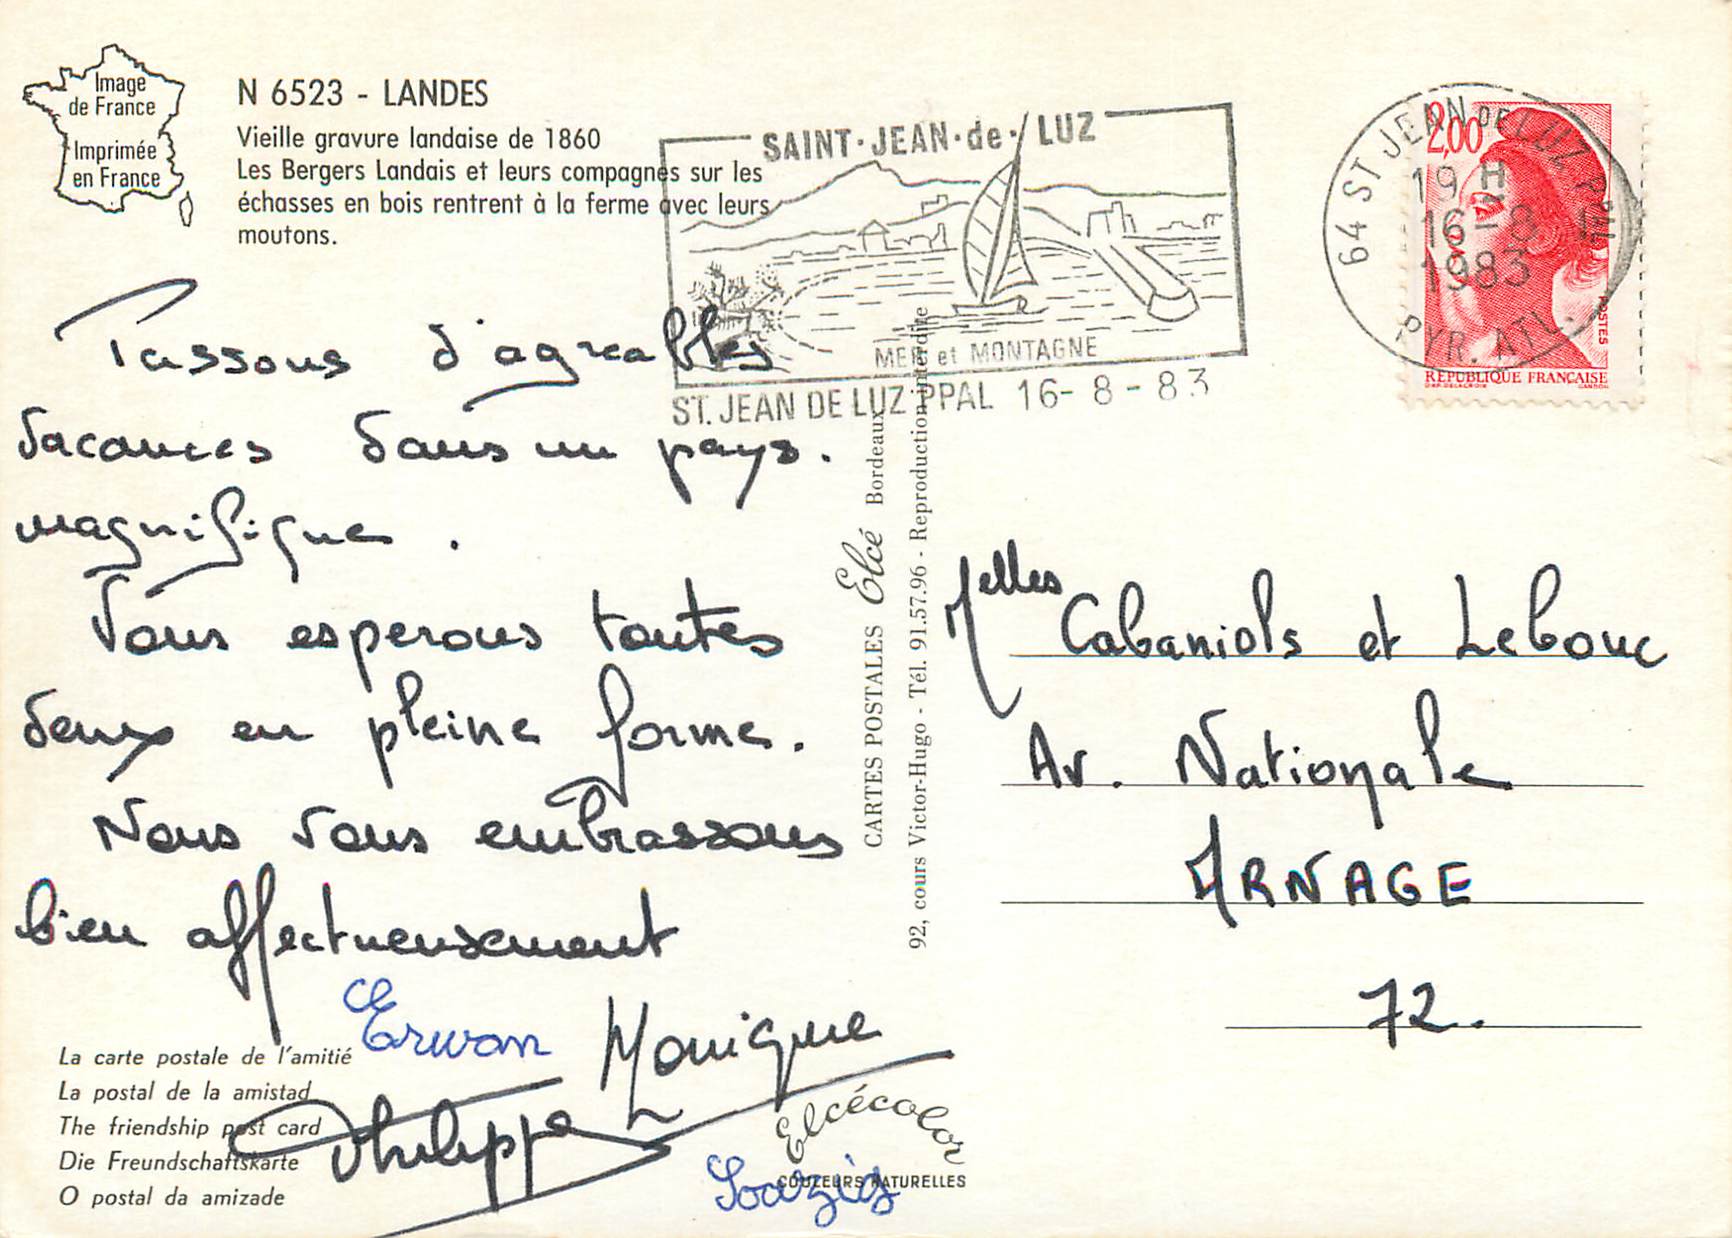 Image
de France
Imprimée
en France
N 6523 - LANDES
Vieille gravure landaise de 1860
Les Bergers Landais et leurs compagnes sur les
échasses en bois rentrent à la ferme avec leurs
moutons.
SAINT-JEAN-de-LUZ
MER et MONTAGNE
ST. JEAN DE LUZ PPAL 16-8-83
64 ST JEAN DE LUZ PPAL
19 H
16-8
1983
PYR. ATL.
2,00
POSTES
RÉPUBLIQUE FRANÇAISE
GANDON
Passons d'agreables
vacances dans un pays.
magnifique.
Vous esperons toutes
deux en pleine forme.
Nous vous embrassons
bien affectueusement
Erwan Monique
Philippe
Soazig
CARTES POSTALES Elcé Bordeaux
92, cours Victor-Hugo - Tél. 91.57.96 - Reproduction interdite
Melles Cabaniols et Lebouc
Av. Nationale
ARNAGE
72.
La carte postale de l'amitié
La postal de la amistad
The friendship post card
Die Freundschaftskarte
O postal da amizade
Elcécolor
COULEURS NATURELLES